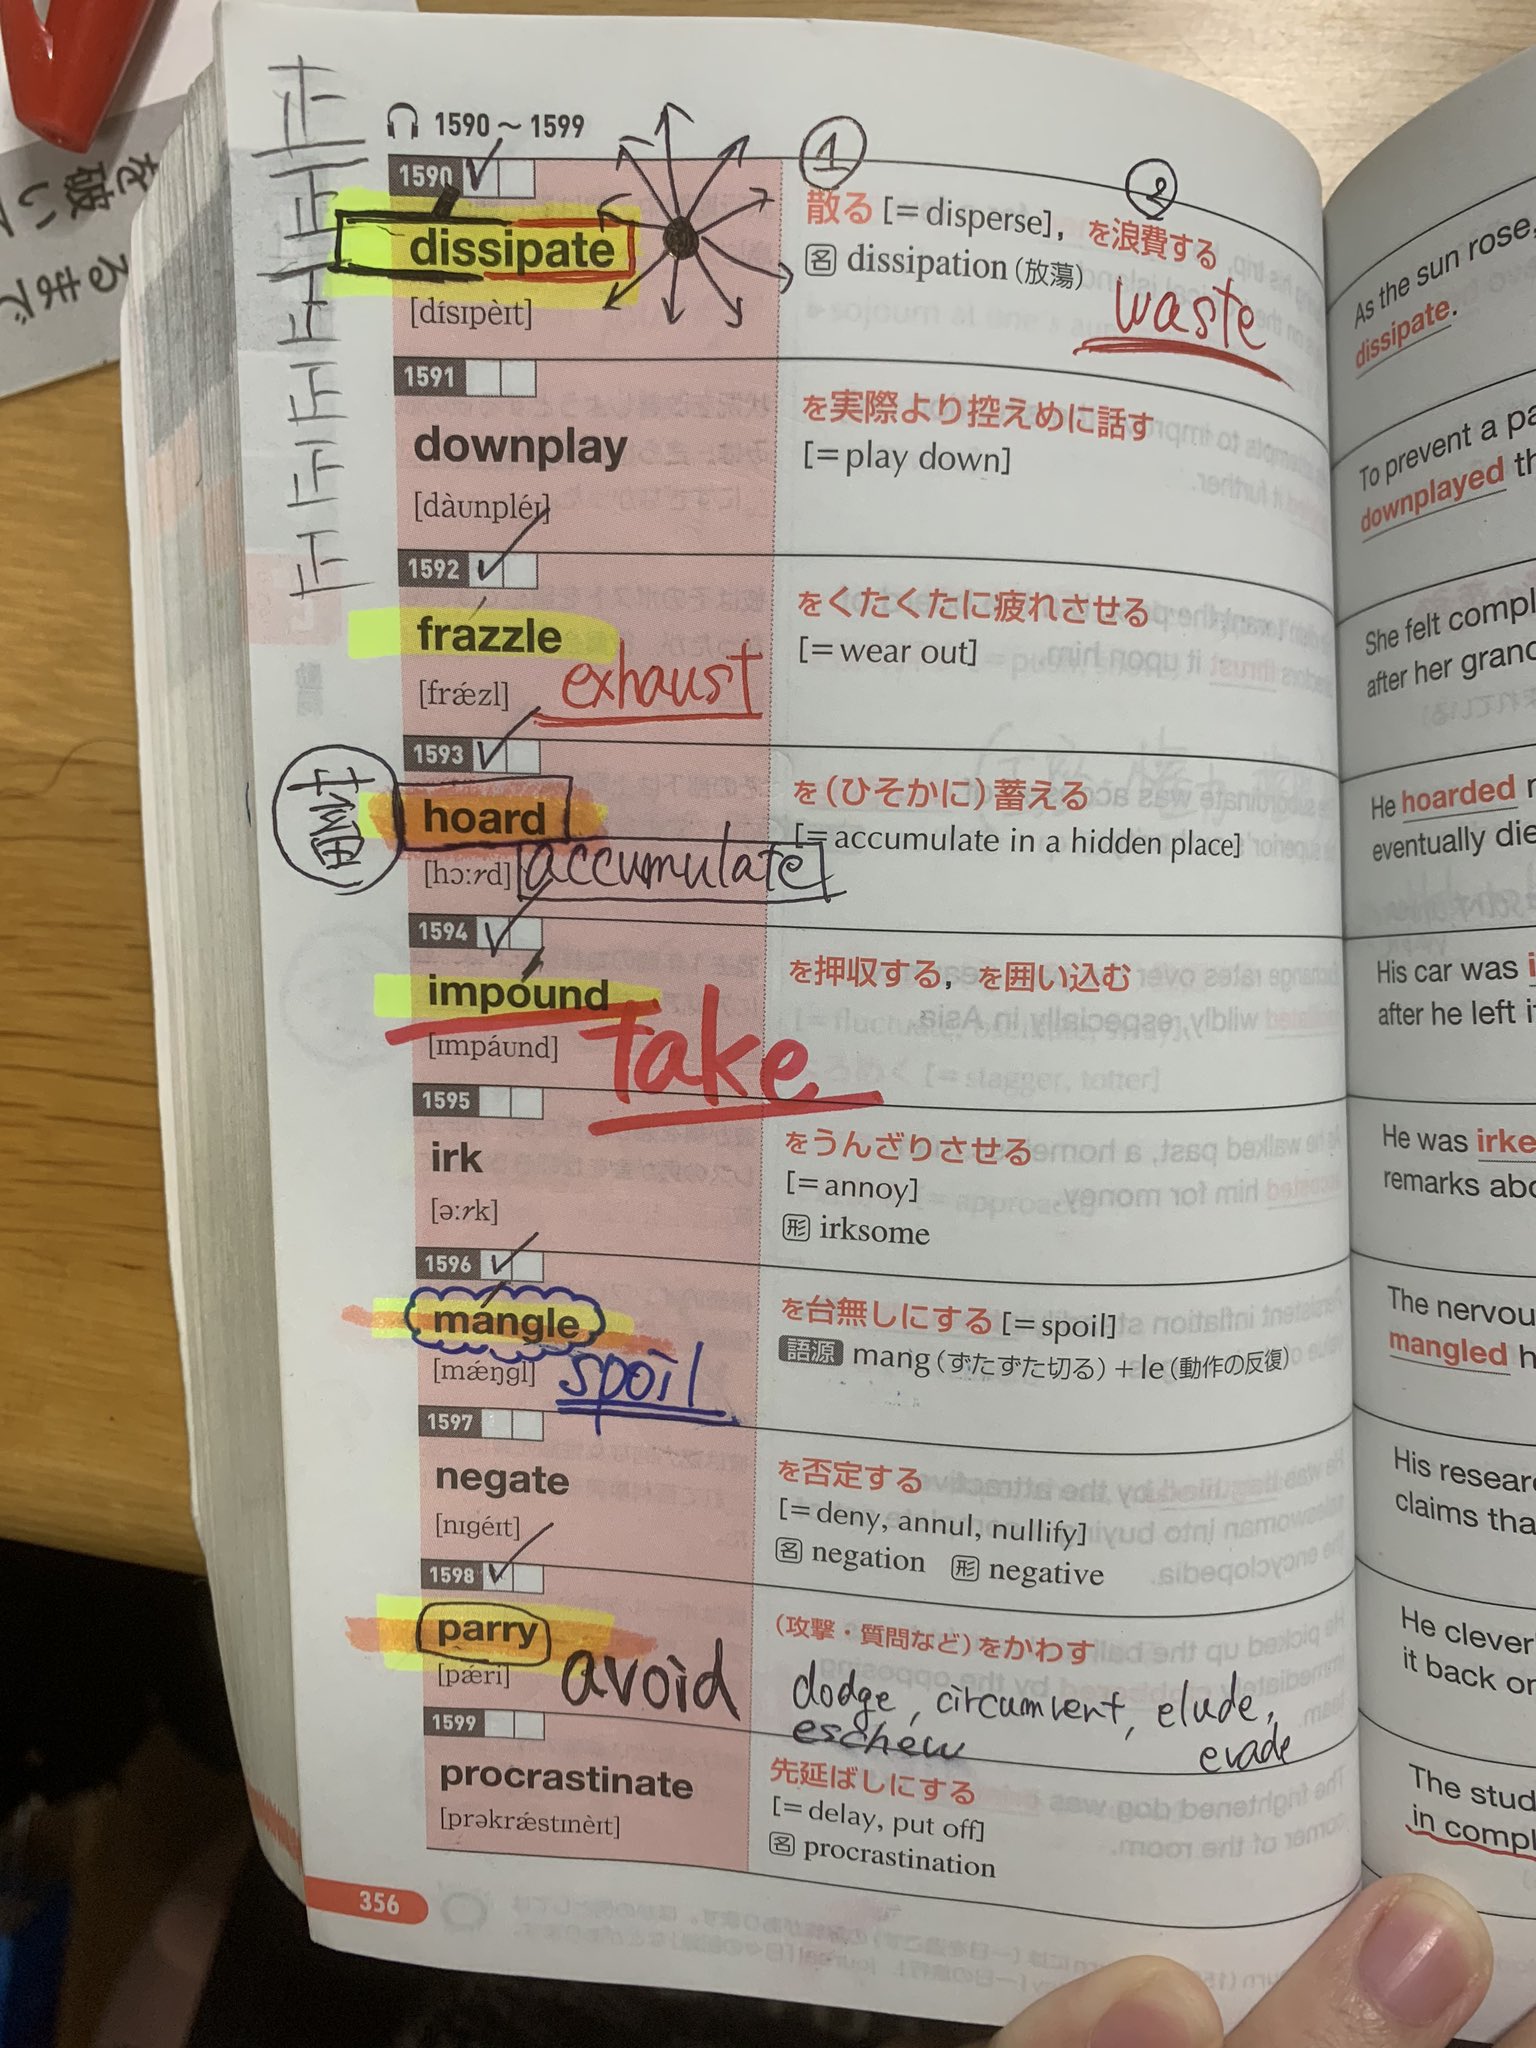 正
正
正
正
正
正
1590～1599
1590
dissipate
[dísɪpèɪt]
①
②
散る [＝disperse], を浪費する
名 dissipation（放蕩）
waste
1591
downplay
[dàʊnpléɪ]
を実際より控えめに話す
[＝play down]
1592
frazzle
[frǽzl]
exhaust
をくたくたに疲れさせる
[＝wear out]
1593
蓄
hoard
[hɔːrd]
accumulate
を（ひそかに）蓄える
[＝accumulate in a hidden place]
1594
impound
[ɪmpáʊnd]
Take
を押収する, を囲い込む
1595
irk
[əːrk]
をうんざりさせる
[＝annoy]
形 irksome
1596
mangle
[mǽŋgl]
spoil
を台無しにする [＝spoil]
語源 mang（ずたずた切る）＋le（動作の反復）
1597
negate
[nɪgéɪt]
を否定する
[＝deny, annul, nullify]
名 negation 形 negative
1598
parry
[pǽri]
avoid
（攻撃・質問など）をかわす
dodge, circumvent, elude,
eschew evade
1599
procrastinate
[prəkrǽstɪnèɪt]
先延ばしにする
[＝delay, put off]
名 procrastination
356
As the sun rose,
dissipate.
To prevent a
downplayed
She felt
after her
He hoarded
eventually
His car was
after he left
He was
remarks
The
mangled
His
claims
He
it back
The